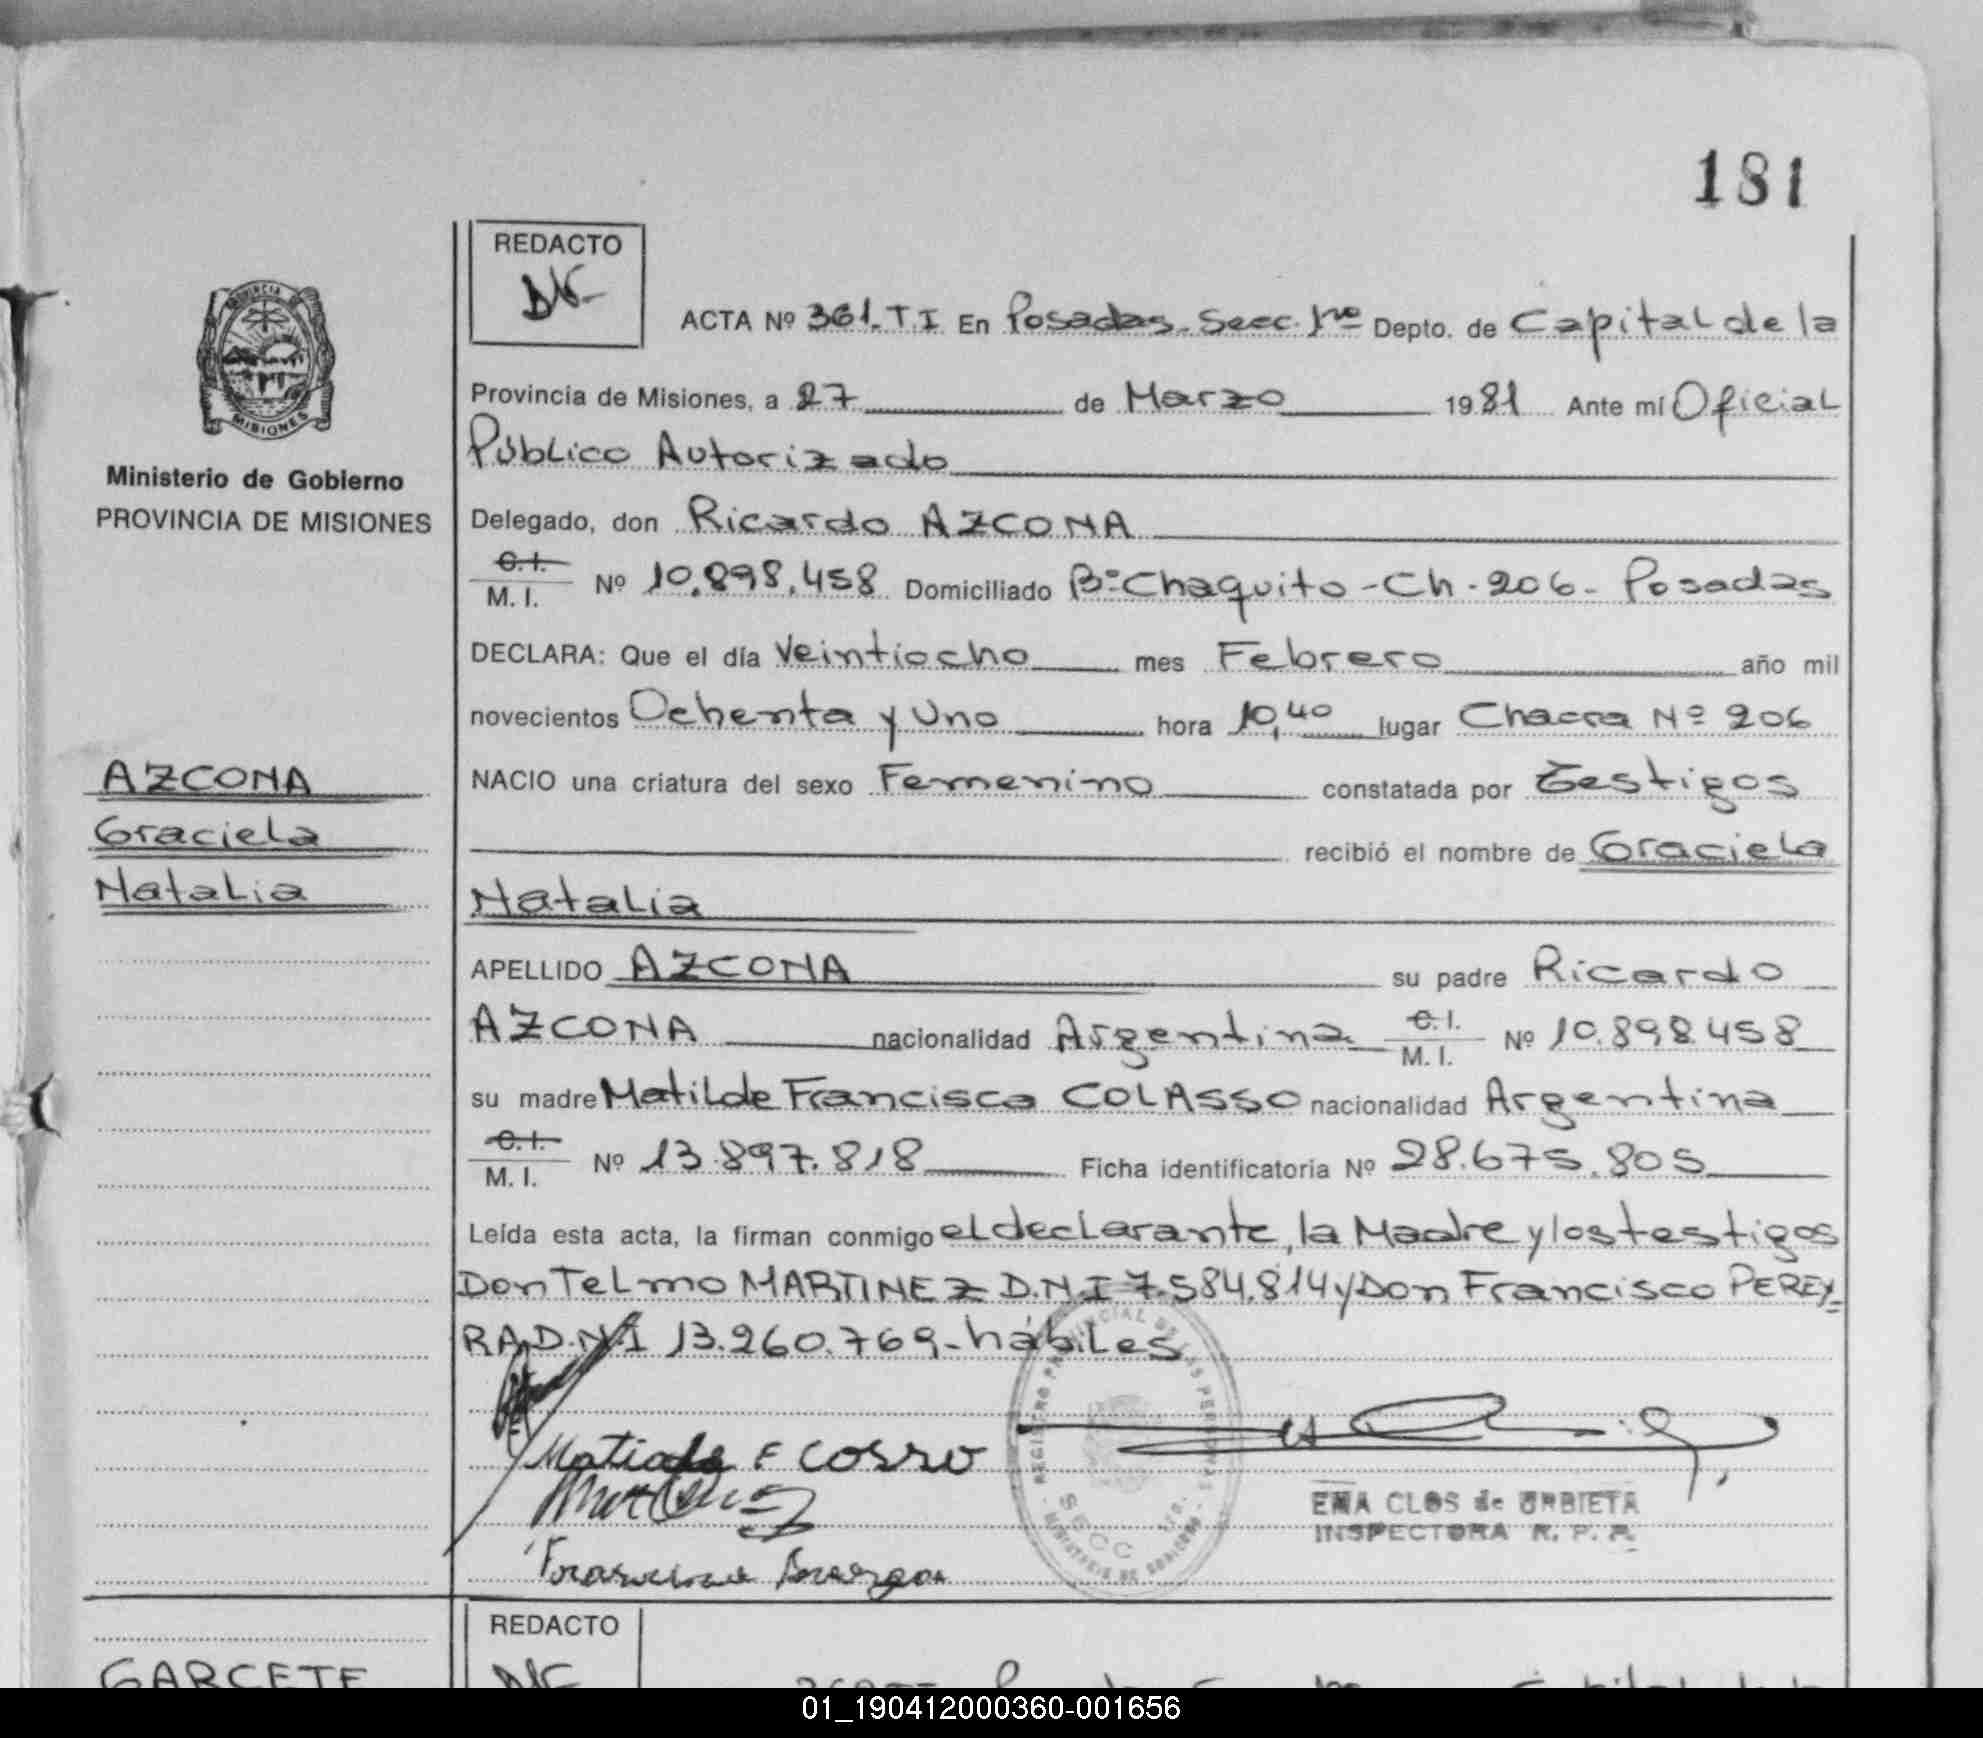 181
REDACTO
ACTA Nº 361. T I En Posadas. Secc. 1ra Depto. de Capital de la
Provincia de Misiones, a 27 de Marzo 1981 Ante mí Oficial
Público Autorizado
Ministerio de Gobierno
PROVINCIA DE MISIONES
Delegado, don Ricardo AZCONA
C.I.
M. I. Nº 10.898.458 Domiciliado Bº Chaquito - Ch - 206 - Posadas
DECLARA: Que el día Veintiocho mes Febrero año mil
novecientos Ochenta y Uno hora 10,40 lugar Chacra Nº 206
AZCONA
Graciela
Natalia
NACIO una criatura del sexo Femenino constatada por Testigos
recibió el nombre de Graciela
Natalia
APELLIDO AZCONA su padre Ricardo
AZCONA nacionalidad Argentina C.I. M. I. Nº 10.898.458
su madre Matilde Francisca COLASSO nacionalidad Argentina
C.I.
M. I. Nº 13.897.818 Ficha identificatoria Nº 28.675.805
Leída esta acta, la firman conmigo el declarante, la Madre y los testigos
Don Telmo MARTINEZ D.N.I 7.584.814 y Don Francisco PEREY=
RA D.N.I 13.260.769 - hábiles
EMA CLOS de URBIETA
INSPECTORA R. P. P.
REDACTO
GARCETE
01_190412000360-001656